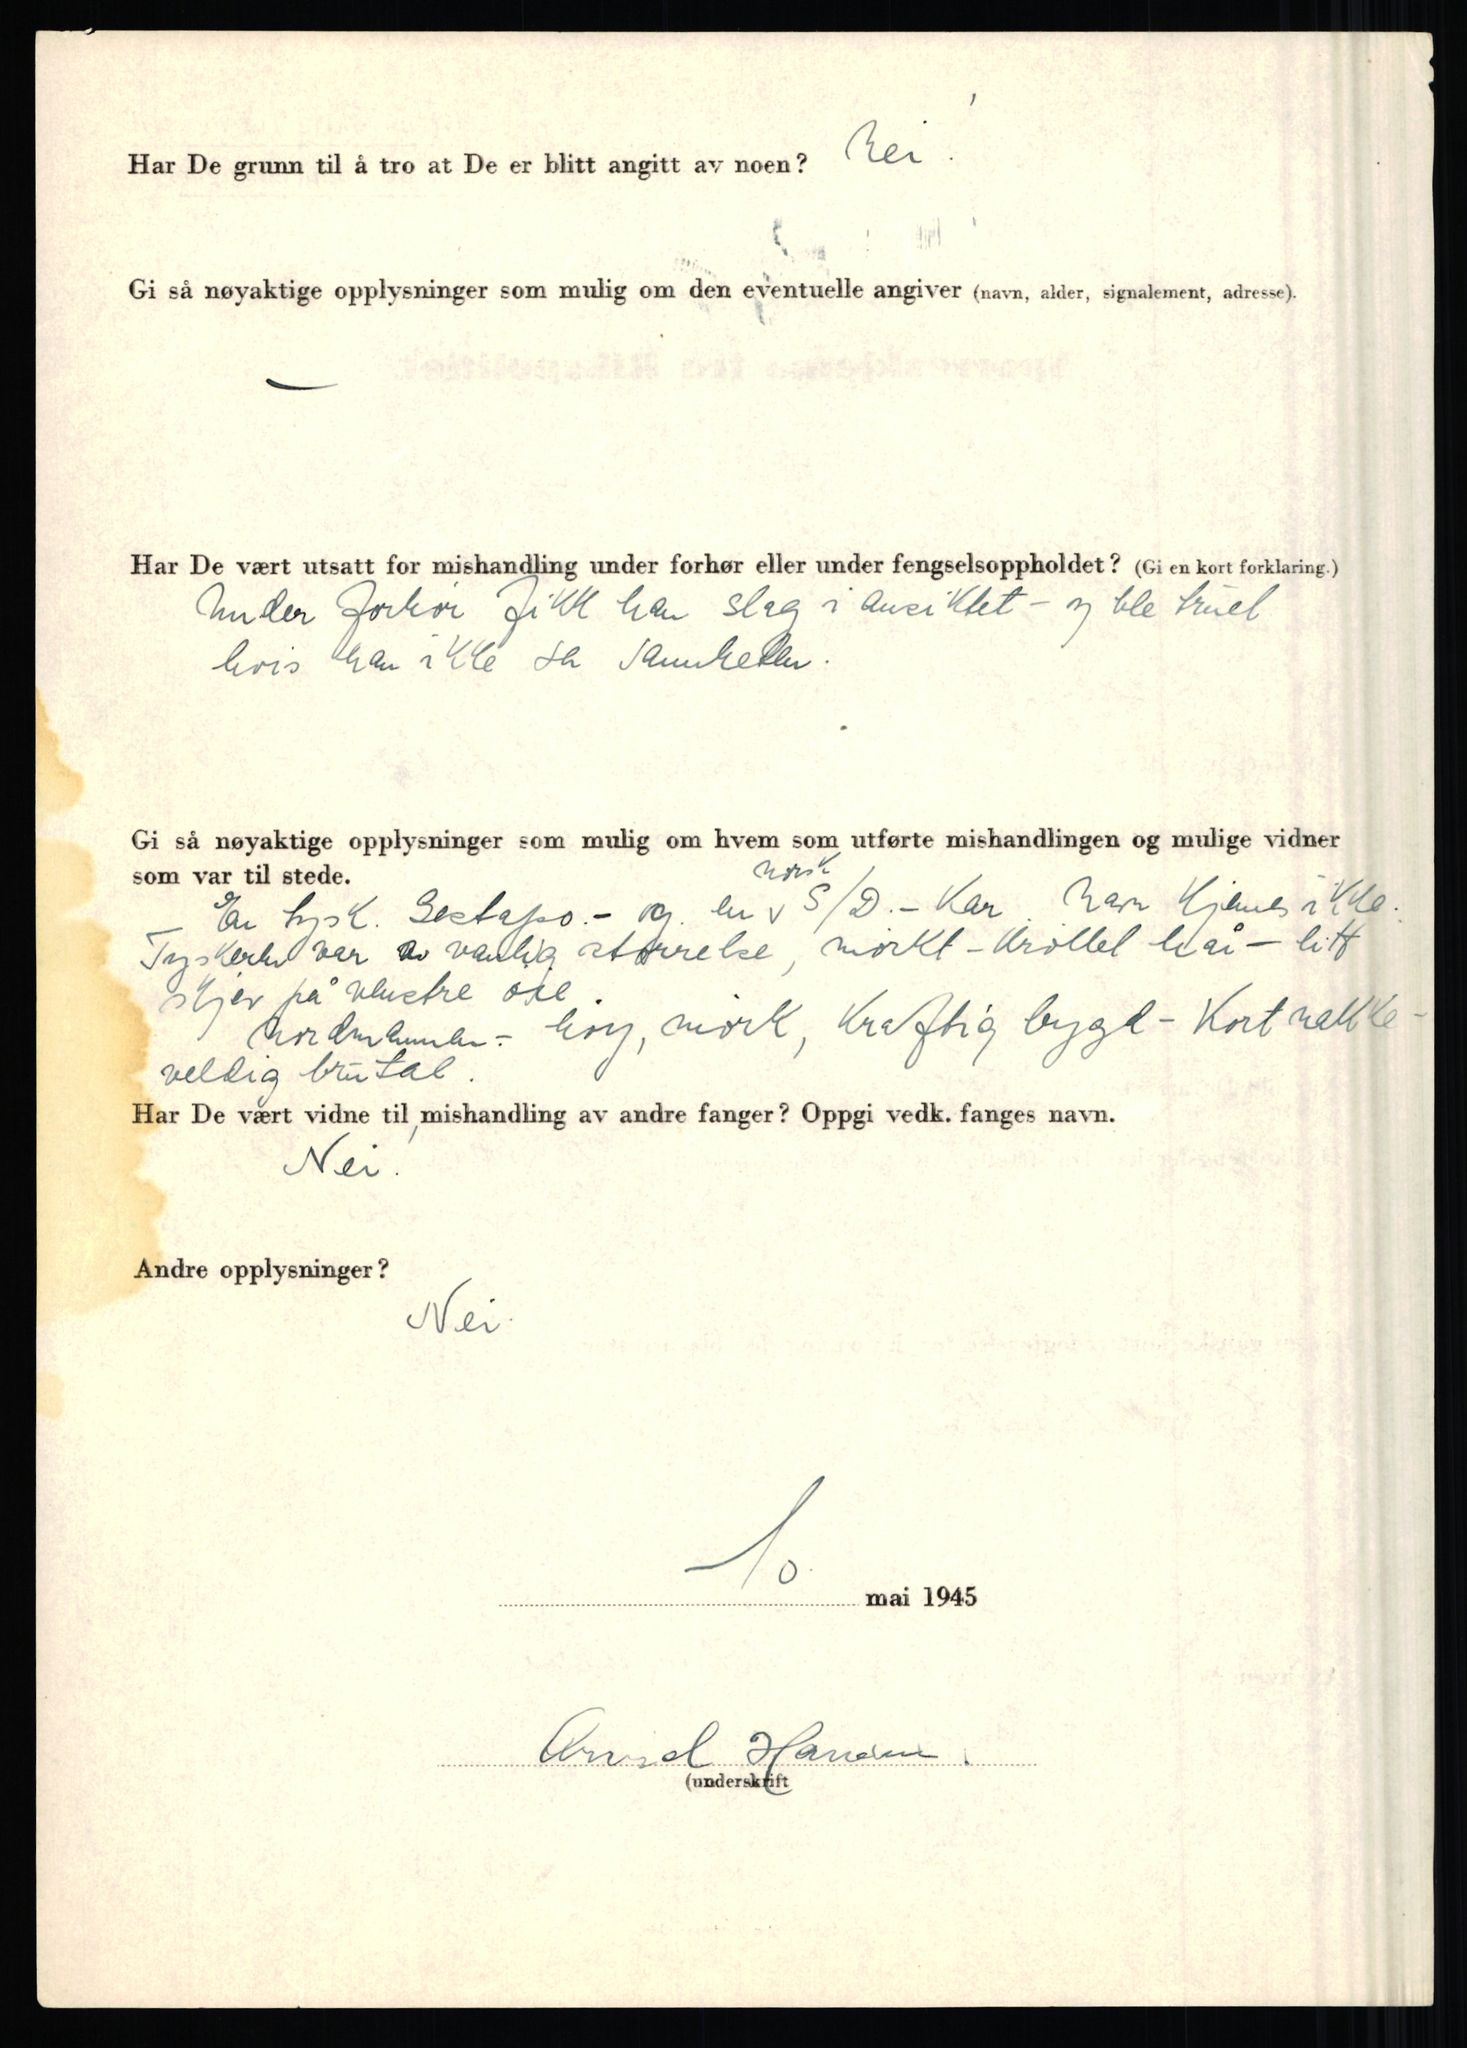 Har De grunn til å tro at De er blitt angitt av noen? Nei.
Gi så nøyaktige opplysninger som mulig om den eventuelle angiver (navn, alder, signalement, adresse).
—
Har De vært utsatt for mishandling under forhør eller under fengselsoppholdet? (Gi en kort forklaring.)
Under forhör fikk han slag i ansiktet – og ble truet
hvis han ikke sa sannheten.
Gi så nøyaktige opplysninger som mulig om hvem som utførte mishandlingen og mulige vidner
som var til stede.
norsk
En tysk. Gestapo. – og. en v S/D. – Kar. Navn kjennes ikke.
Tyskeren var av vanlig størrelse, mörkt – kröllet hår – litt
skjev på venstre öie.
Nordmannen – höy, mörk, kraftig bygd – Kort nakke –
veldig brutal.
Har De vært vidne til mishandling av andre fanger? Oppgi vedk. fanges navn.
Nei.
Andre opplysninger?
Nei.
10. mai 1945
Arvid Hansen.
(underskrift